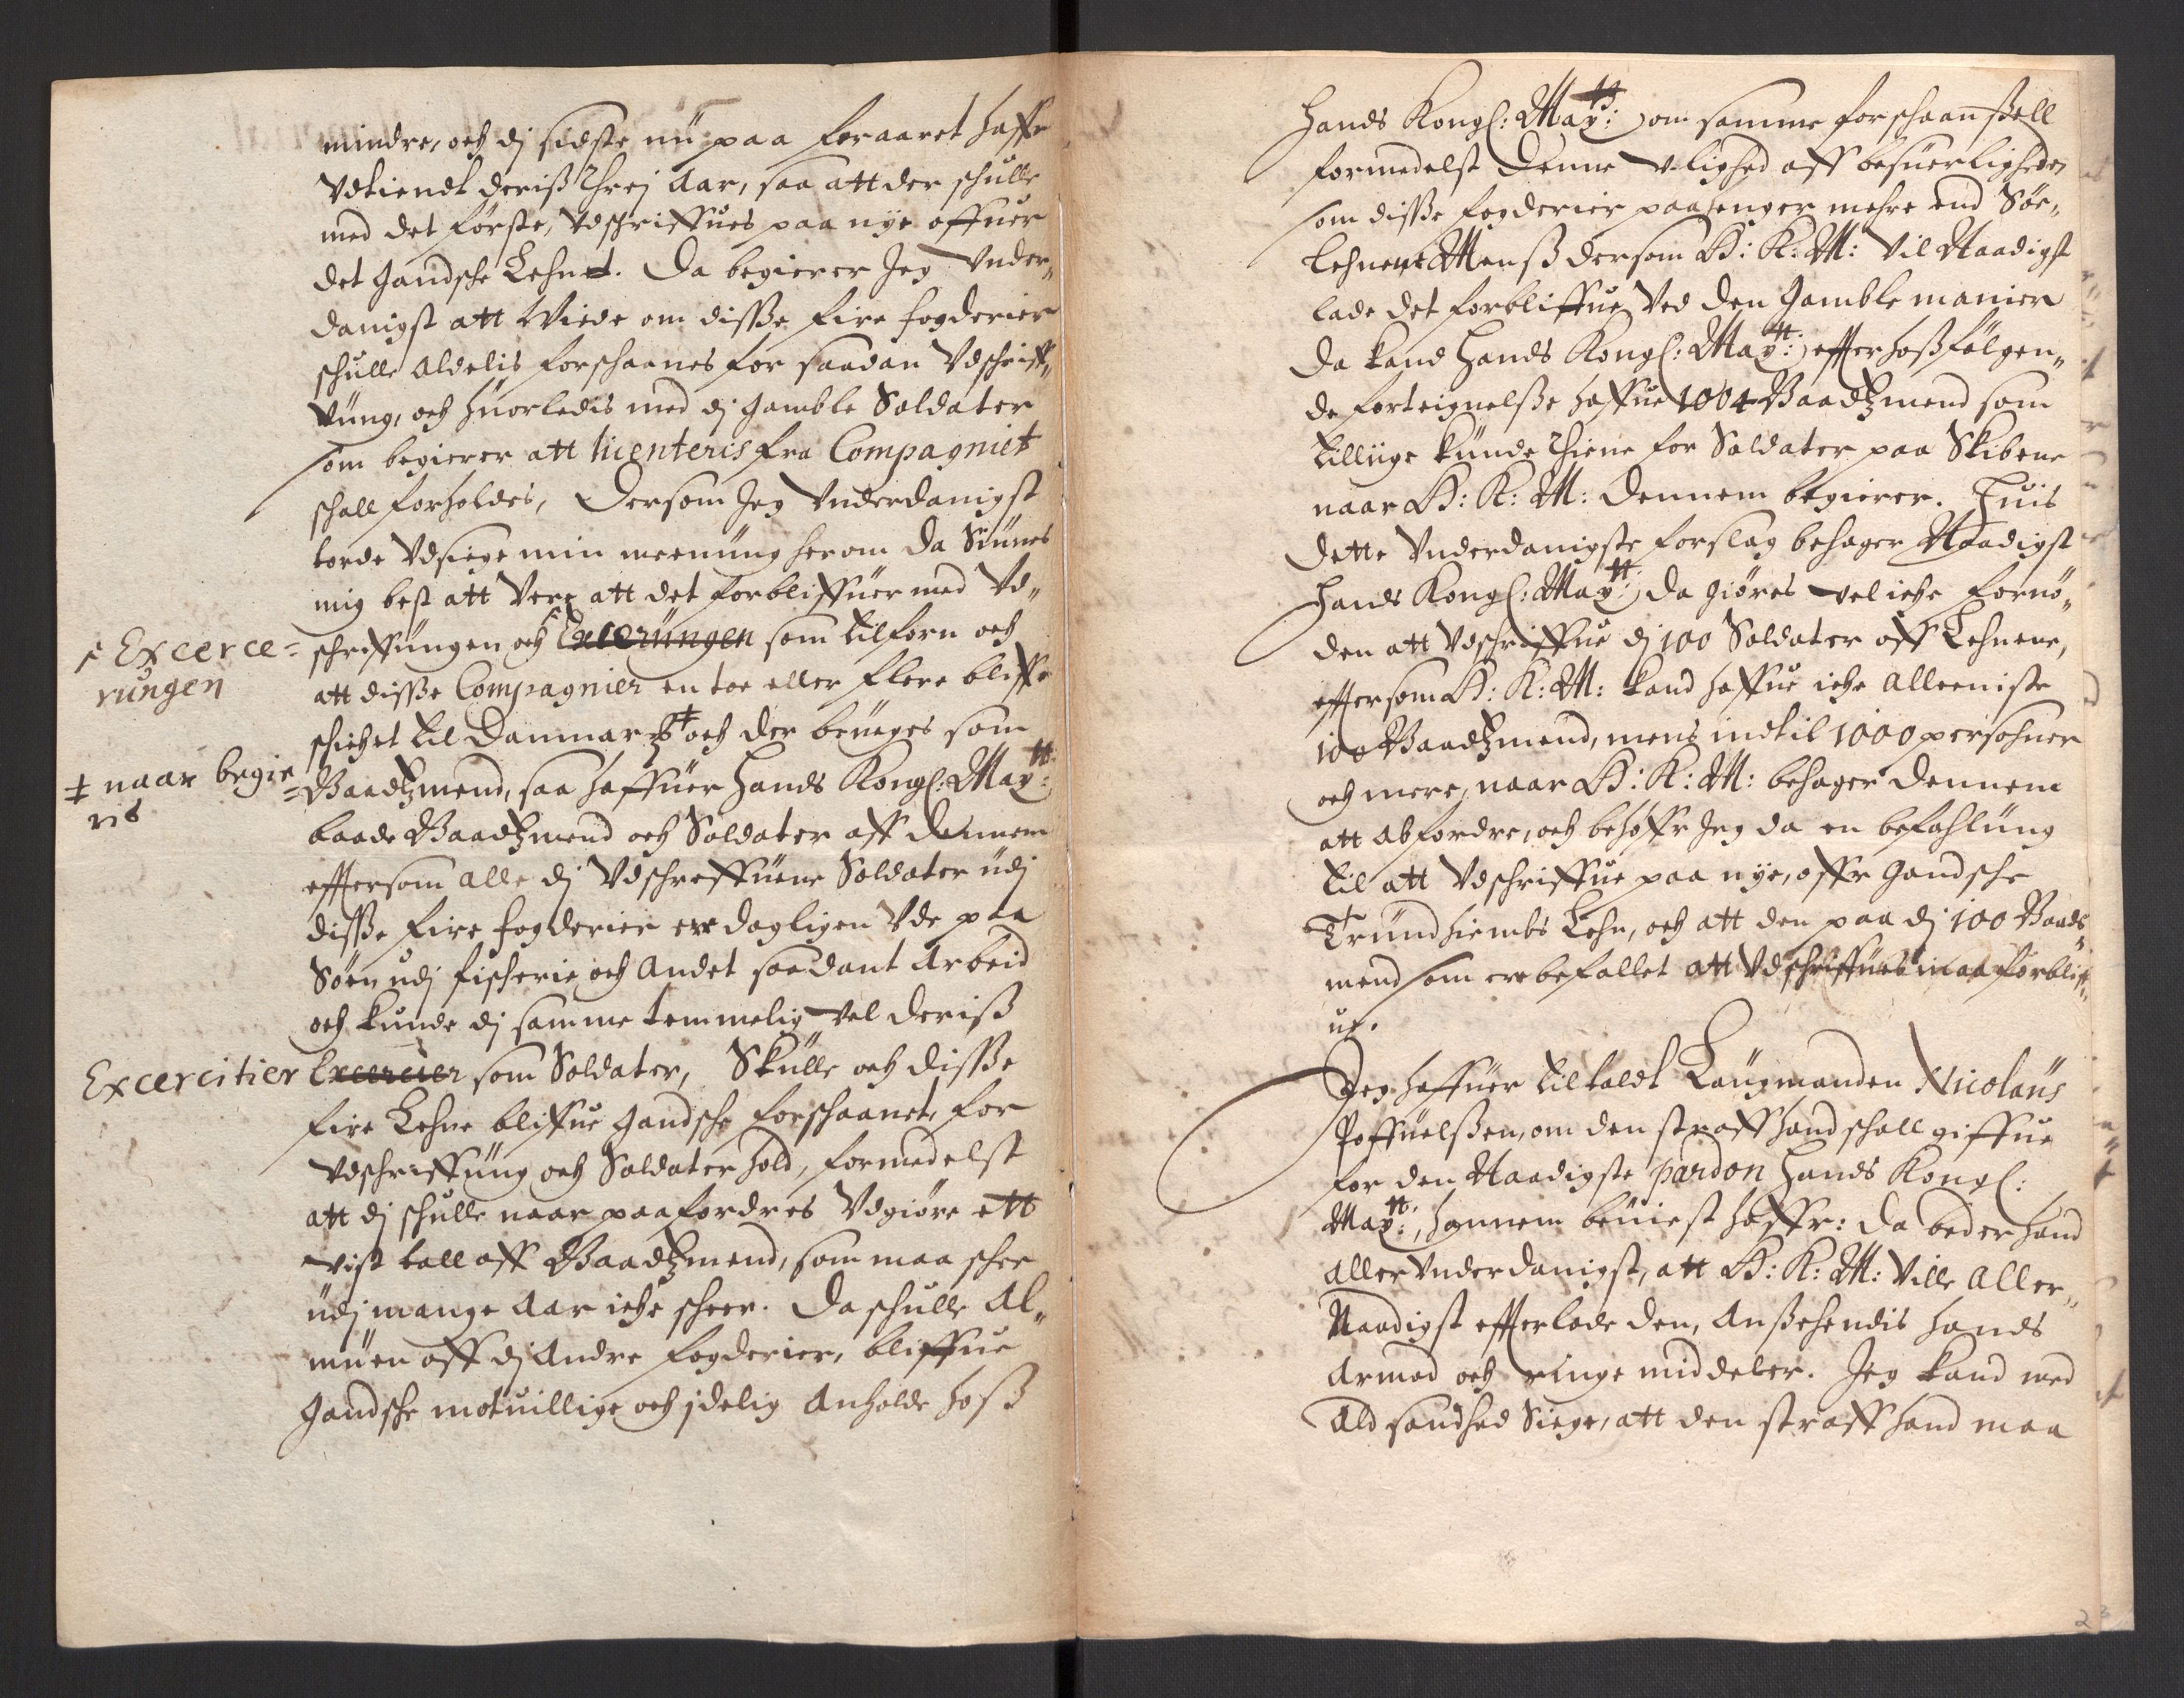 mindre, och dj sidste nu paa foraaret haffr
Vdtiendt deriss Threj Aar, saa att der schulle
med det første, Vdschriffues paa nye offuer
det gandsche Lehnet. Da begierer Jeg Vnder„
danigst att Wiede om disse fire fogderier
schulle aldelis forschaanes for saadan Vdschriff„
vung, och huorledis med dj gamble Soldater
som begierer att licenteris fra Compagniet
schall forholdes, Dersom Jeg Vnderdanigst
torde Vdsiege min meenung herom da Siunes
mig best att Vere att det forbliffuer med Vd„
schriffungen och Excerungen som tilforn och
⸗ Excerce=
rungen
att disse Compagnier en toe eller flere bliffr
schichet til Danmarch ‡ och der brueges som
‡ naar begie
ris
=Baadzmend, saa haffuer Hands Kongl: Maytt:
baade Baadzmend och Soldater aff dennem
effersom alle dj Vdschreffuene Soldater udj
disse fire fogderier ere dagligen Vde paa
Søen udj fischerie och Andet saadant Arbeid
och kunde dj samme temmelig vel deriss
Excercitier Excercier som Soldater, Skulle och disse
fire Lehne bliffue gandsche forschaanet, for
Vdschriffung och Soldater hold, formedelst
att dj schulle naar paafordres Vdgiøre ett
vist tall aff Baadzmend, som maa schee
udj mange Aar iche scheer. Da schulle Al„
muen aff dj Andre fogderier, bliffue
gandsche motuillige och jdelig Anholde hoss
Hands Kongl: Maytt: om samme forschaanssell
formedelst denne vlighed aff besuerligheder
som disse fogderier paahenger mehre end Søe„
Lehnene Menss dersom H: K: M: Vil Naadigst
lade det forbliffue Ved den gamble manier
Da kand Hands Kongl: Maytt: effter hossfølgen„
de forteignelsse haffue 1004 Baadzmend som
tillige kunde Thiene for Soldater paa Skibene
naar H: K: M: Dennem begierer. Huis
dette Vnderdanigste forslag behager Naadigst
Hands Kongl: Maytt: da giøres vel iche fornø„
den att Vdschriffue dj 100 Soldater aff Lehnene,
effersom H: K: M: kand haffue iche alleeniste
100 Baadzmend, mens indtil 1000 persohner
och mere, naar H: K: M: behager dennem
att abfordre, och behøffr Jeg da en befahlung
til att Vdschriffue paa nye, offr gandsche
Trundhiembs Lehn, och att den paa dj 100 Baads„
mend som ere befallet att Vdschriffues maa forblif„
ue.
Jeg haffuer tiltaldt Laugmanden Nicolaus
Poffuelssen, om den straff hand schall giffue
for den Naadigste pardon Hands Kongl:
Maytt:, hannem beuiest haffr: da beder hand
aller Vnderdanigst, att H: K: M: Ville aller„
Naadigst effterlade den, Anssehendis hands
Armod och ringe middeler. Jeg kand med
Ald sandhed Siege, att den straff hand maa